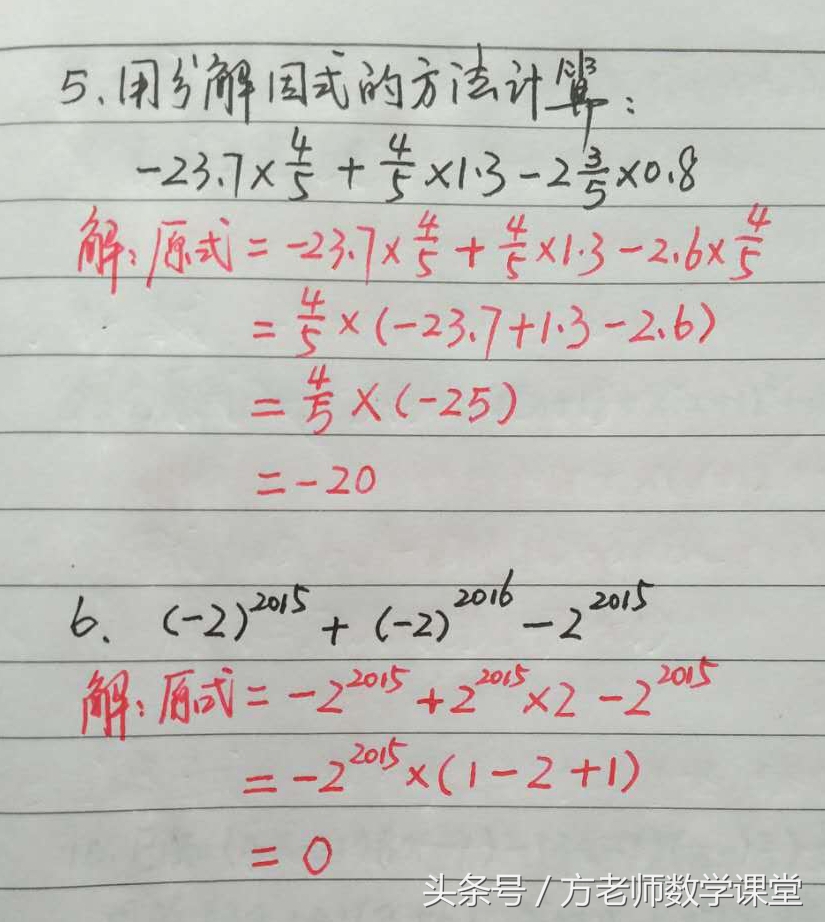 5、用分解因式的方法计算:
-23.7×4/5 + 4/5×1.3-2 3/5×0.8
解:原式= -23.7×4/5 + 4/5×1.3-2.6×4/5
= 4/5×(-23.7+1.3-2.6)
= 4/5×(-25)
= -20
6、(-2)^2015 + (-2)^2016 - 2^2015
解:原式= -2^2015 + 2^2015×2 - 2^2015
= -2^2015×(1-2+1)
= 0
头条号 / 方老师数学课堂